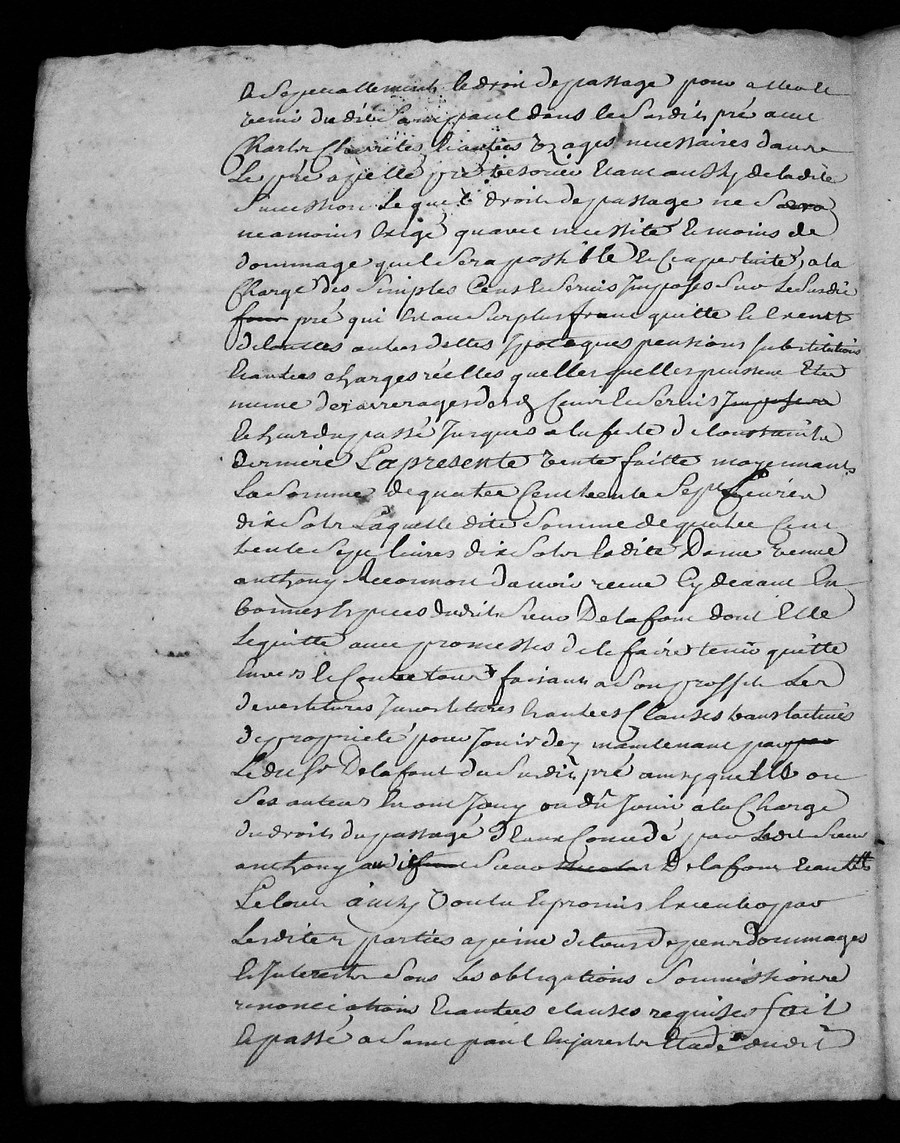 le droit de passage pour
venir dudit Saint paul dans le Susdit pré avec
Charettes usages necessaires dans
Le pré apellé de ladite
Succession Lequel droit de passage ne Sera
neamoins Exigé quavec necessité Et moins de
dommage quil Sera possible a la
Charge des Simples Cens Et Servis Imposés Sur Le Susdit
pré qui Est au Surplus franc quitte Et Exempt
de touttes autres dettes Ipoteques pensions Substitutions
Et autres charges réelles quelles quelles puissent Etre
meme des arrerages desd Cens Et Servis
Et du passé Jusques a la feste de
derniere La presente Vente faitte moyennant
La Somme de quatre Cent trente Sept Livres
dix Sols Laquelle dite Somme de quatre Cent
trente Sept livres dix Sols ladite Dame veuve
anthony Reconnoit davoir receu Cy devant En
bonnes Especes dudit Sieur Delafont dont Elle
Le quitte avec promesses de le faire tenir quitte
Envers Et Contre tous faisant a Son proffit Les
devestitures Investitures Et autres Clauses translatives
de proprieté pour Jouir dez maintenant par
Ledit Sr Delafont du Susdit pré ainsy quelle ou
Ses auteurs En ont Jouy ou dû Jouir a la Charge
du droit du passage par Ledit Sieur
anthony Sieur Delafont
ainsy Voulu Et promis Executer par
Lesdites parties a peine de tous depens dommages
Et Interests Sous Les obligations Soumissions
renonciations Et autres clauses requises fait
Et passé a Saint paul En Jarest